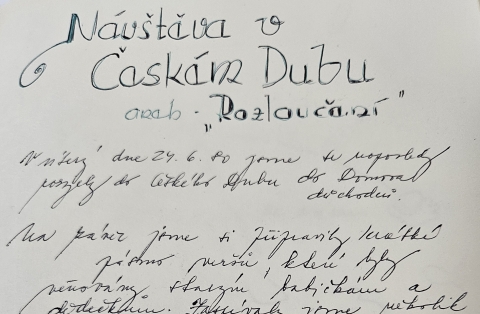 Návštěva v
Českém Dubu
aneb - "Rozloučení"
V úterý dne 24.6.80 jsme se naposledy
do Českého Dubu do Domova
důchodců.
Na závěr jsme si připravily krátké
pásmo veršů, které byly
věnovány starým babičkám a
dědečkům. jsme několik